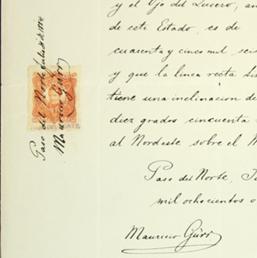 y el Ojo del Lucero, an
de este Estado, es de
cuarenta y cinco mil sei
y que la linea recta
tiene una inclinacion de
diez grados cincuenta
al Nordeste sobre el
Paso del Norte, J
mil ochocientos o
Mauricio
Paso del Norte Julio
Mauricio